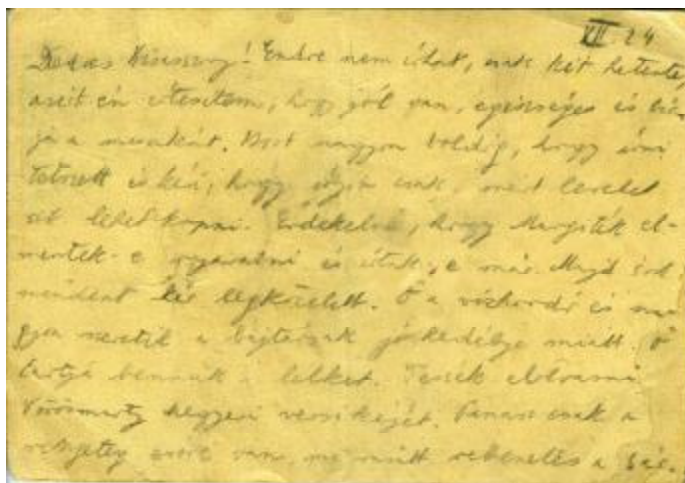 VII 24
Kedves Kisasszony! Endre nem írhat, csak két hetente,
azért én értesítem, hogy jól van, egészséges és bír-
ja a munkát. Most nagyon boldog, hogy írni
tetszett és kéri, hogy írjon csak, mert levelet
ott lehet kapni. Érdekelné, hogy Margiték el-
mentek-e nyaralni és írtak-e már. Majd írok
mindent legközelebb. Ő a vízhordó és na-
gyon szeretik a bajtársak jó kedélye miatt. Ő
tartja bennük a lelket. Tessék elolvasni
Vörösmarty hegyen Panasz csak a
rengeteg van, a